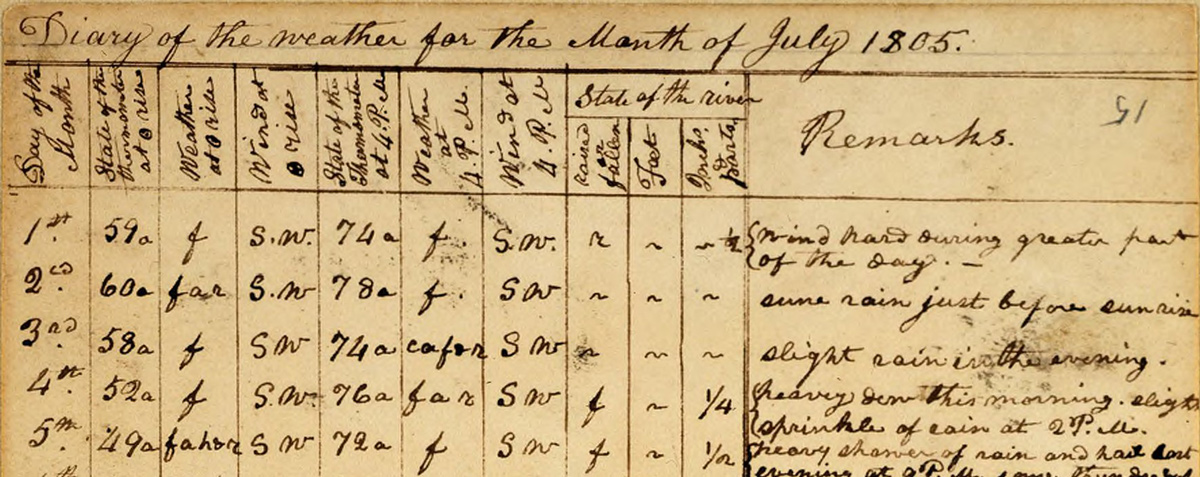 Diary of the weather for the Month of July 1805.
Day of the Month | State of the thermometer at ☉ rise | Weather at ☉ rise | Wind at ☉ rise | State of the Thermometer at 4. P. M. | Weather at 4 P. M. | Wind at 4. P. M | State of the river | raised or fallen | Feet | Inchs. & parts | Remarks.
15
1st. 59a f S.W. 74a f. S.W. r ~ ~ ½ wind hard during greater part
of the day. —
2cd. 60a f a r S.W 78a f. S W ~ ~ ~ some rain just before sun rise
3rd. 58a f S W 74a c a f & r S W ~ ~ ~ slight rain in the evening.
4th. 52a f S.W. 76a f a r S W f ~ 1/4 heavy dew this morning. slight
sprinkle of rain at 2 P. M.
5th. 49a f a h & r S W 72a f S W f ~ 1/2 heavy shower of rain and hail last
evening at 9 P. M. some thunder &